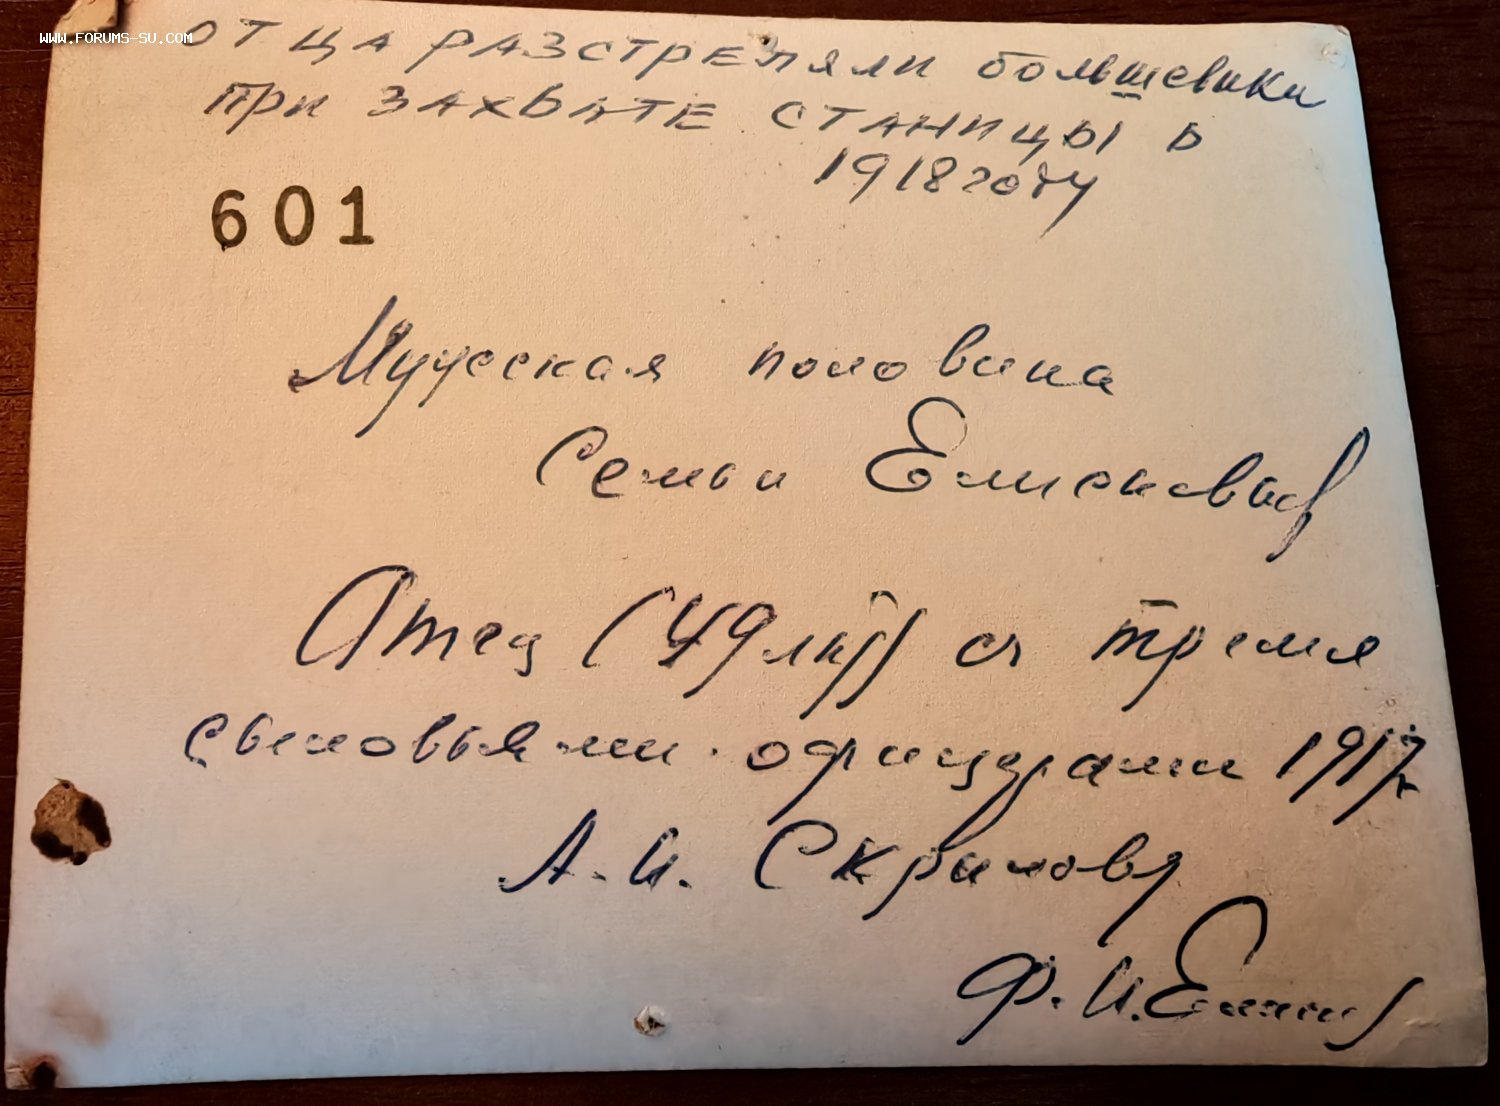 WWW.FORUMS-SU.COM
ОТЦА РАЗСТРЕЛЯЛИ большевики
при ЗАХВАТЕ СТАНИЦЫ в
1918 году
601
Мужская половина
Семьи Елисеевых
Отец (49 лет) съ тремя
сыновьями-офицерами 1917 г.
А. И. Скрылову
Ф. И. Елисеев